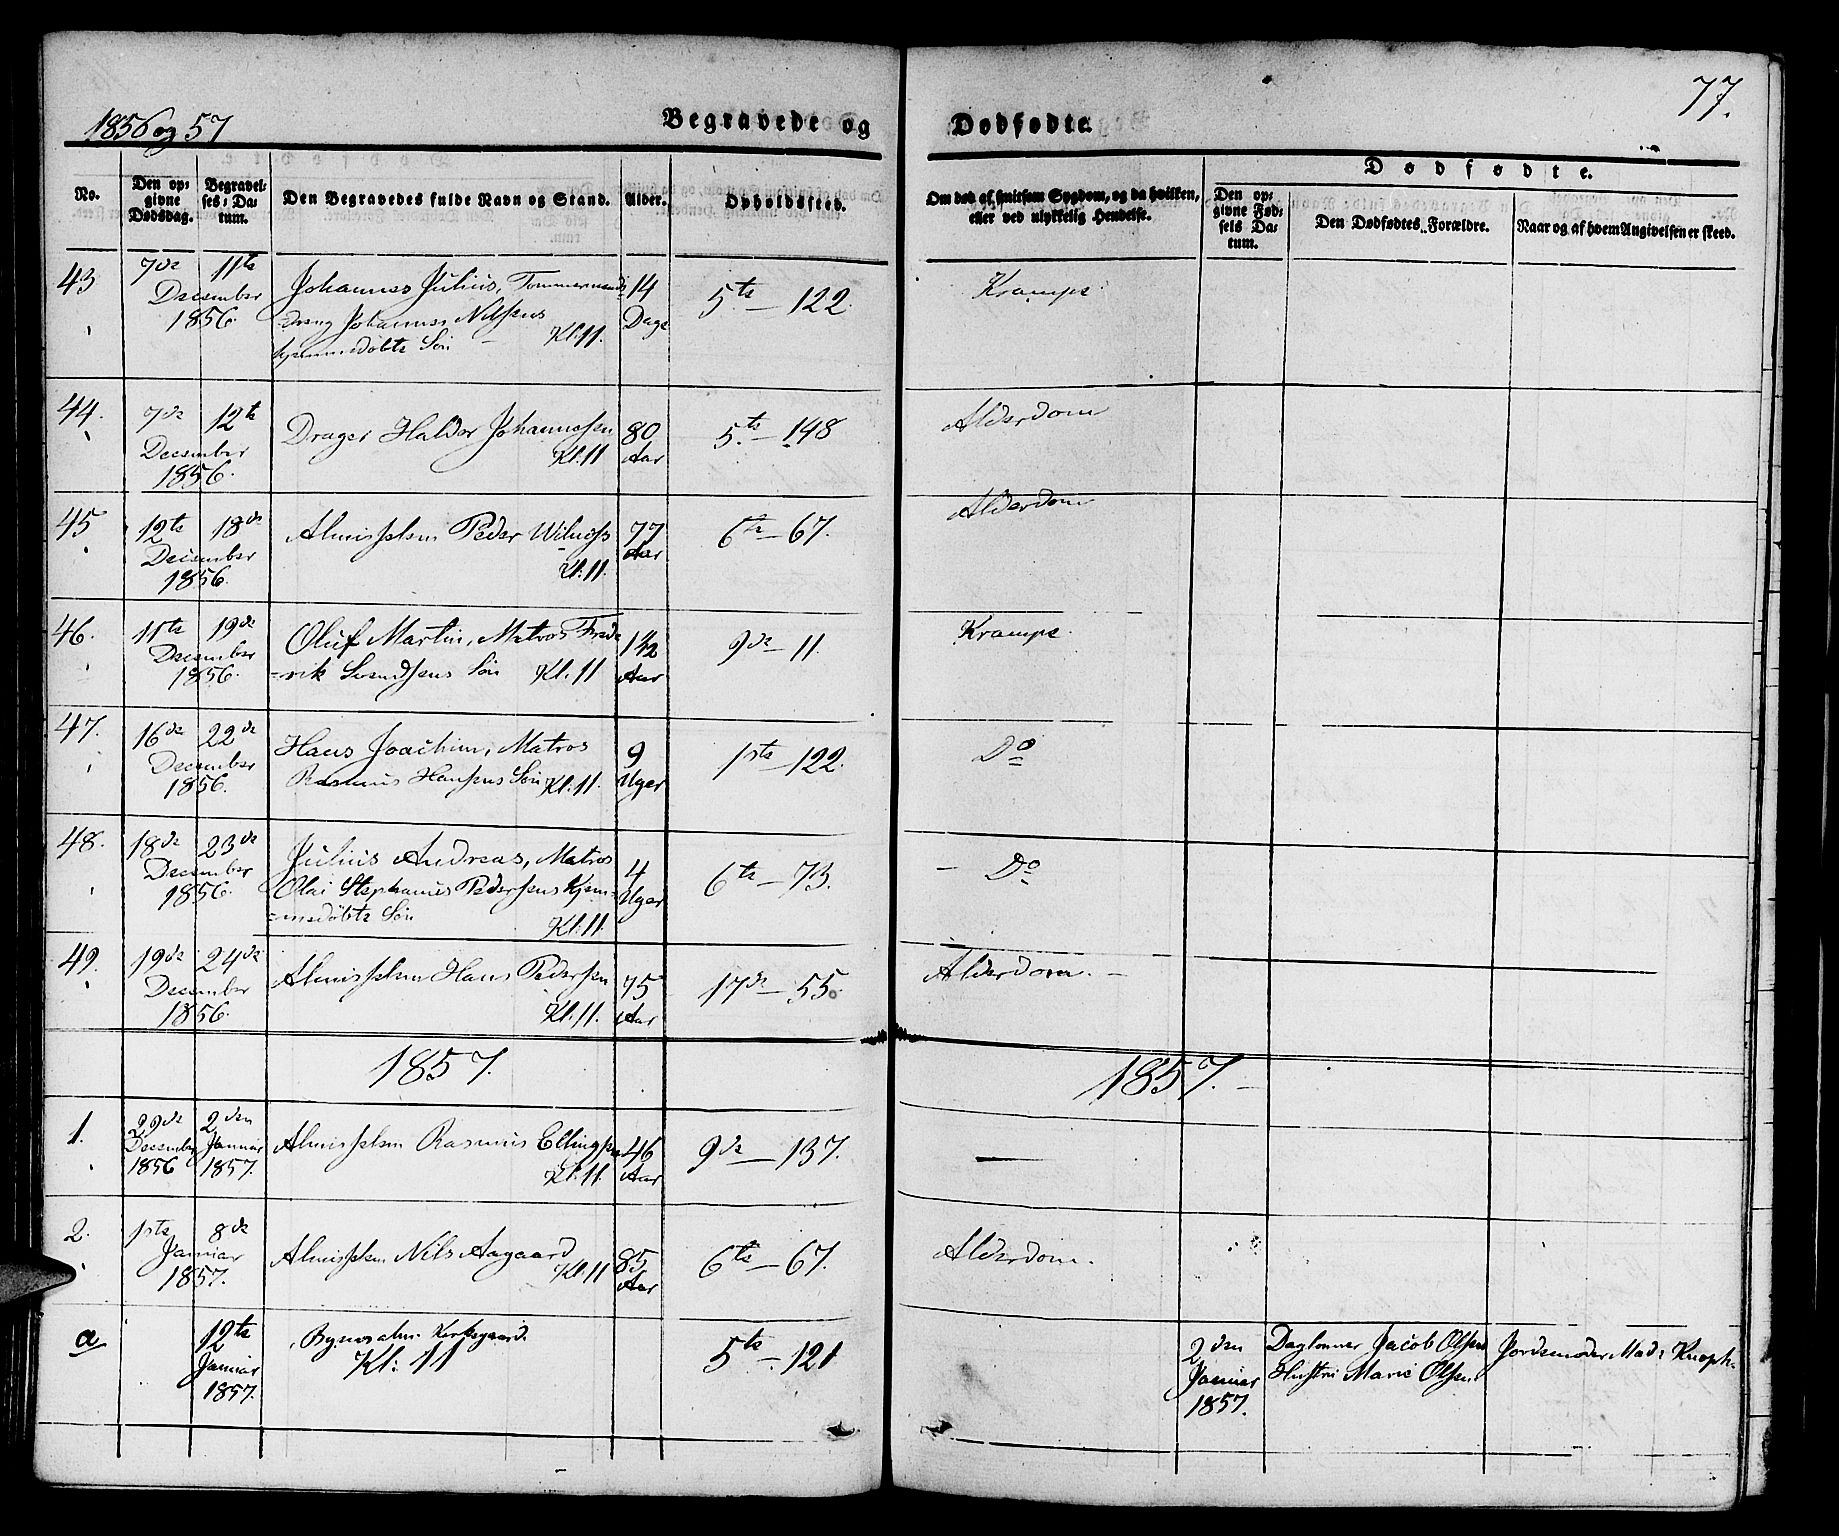 1856 og 57
Begravede og Dødfødte.
77.
No.
Den opgivne Dødsdag.
Begravelses-Datum.
Den Begravedes fulde Navn og Stand.
Alder.
Opholdssted.
Om død af smitsom Sygdom, og da hvilken,
eller ved ulykkelig Hendelse.
Dødfødte.
Den opgivne Fødsels Datum.
Den Dødfødtes Forældre.
Naar og af hvem Angivelsen er skeed.
43 7de 11te Johannes Julius, Tømmermands- 14 5te — 122. Krampe.
December =dreng Johannes Nilsens Dage
1856. hjemmedøbte Søn Kl: 11.
44. 7de 12te Drager Haldor Johannesen 80 5te — 148 Alderdom
December Kl: 11 Aar
1856.
45 12te 18de Almisselem Peder Wilnøss 77 6te — 67. Alderdom
December Kl. 11. Aar
1856.
46. 11te 19de Oluf Martin, Matros Frede 1½ 9de — 11. Krampe.
December =rik Svendsens Søn Kl. 11 Aar
1856.
47. 16de 22de Hans Joachim, Matros 9 1ste — 122. Do
December Rasmus Hansens Søn Kl. 11. Uger
1856.
48. 18de 23de Julius Andreas, Matros 4 6te — 73. — Do
December Olai Stephanus Pedersens Hjem= Uger
1856. =medøbte Søn Kl. 11.
49. 19de 24de Almisselem Hans Pedersen 75 17de — 55. Alderdom. —
December Kl. 11. Aar
1856.
1857. 1857. —
1. 29de 2den Almisselem Rasmus Ellingsen 46 9de — 137. —
December Januar Kl. 11. Aar
1856 1857.
2. 1ste 8de Almisselem Nils Aagaard 85 6te — 67. Alderdom.
Januar Kl. 11 Aar
1857.
a 12te Kirkegaard. 5te — 121 2den Daglønner Jacob Olsens Jordemoder Mad: Knoph.
Januar Kl: 11 Januar Hustru Marie Olsen
1857. 1857.